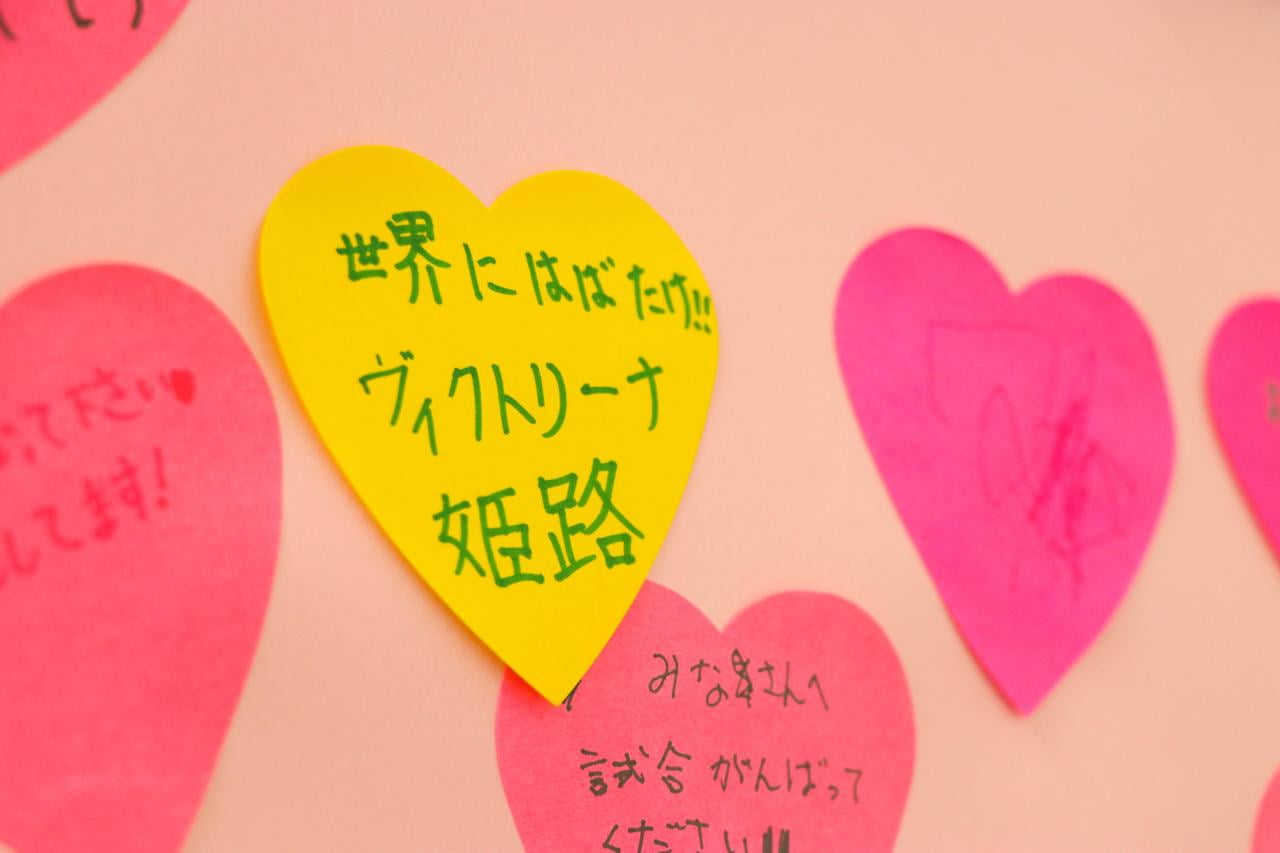 世界にはばたけ!!
ヴィクトリーナ
姫路
って下さい
してます!
みなさんへ
試合がんばって
ください!!